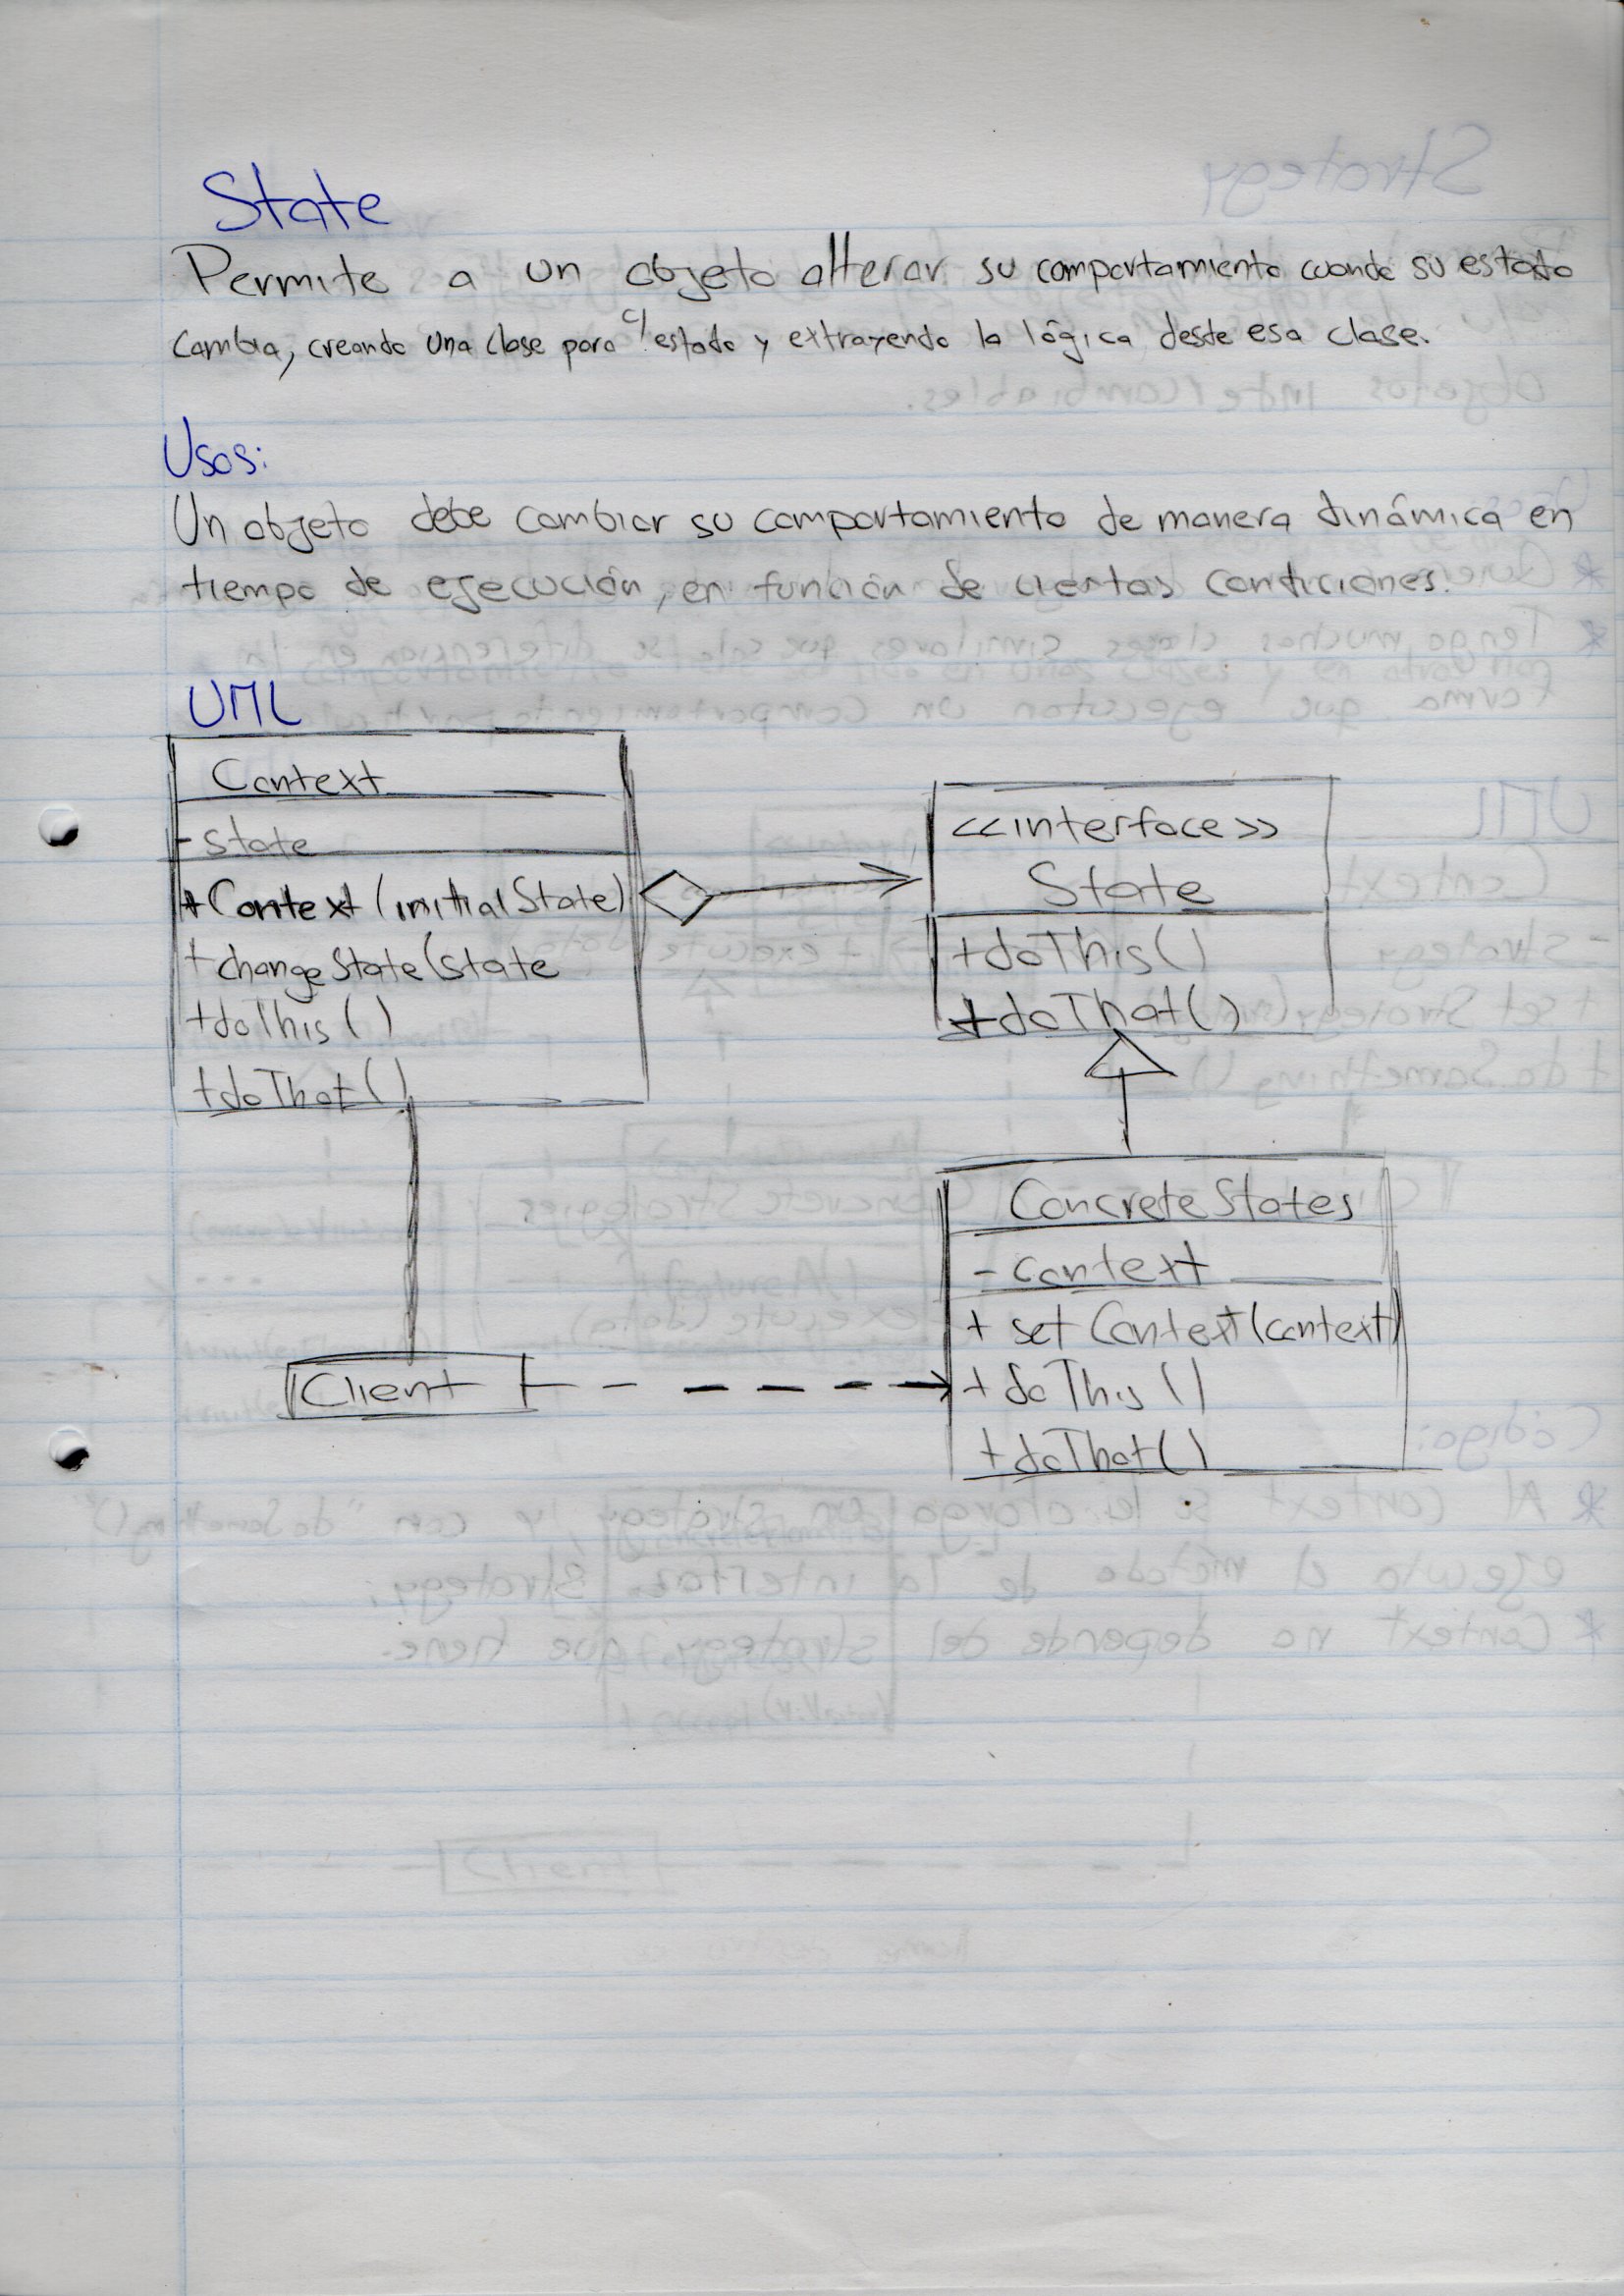 State
Permite a un objeto alterar su comportamiento cuando su estado
cambia, creando una clase para c/ estado y extrayendo la lógica desde esa clase.
Usos:
Un objeto debe cambiar su comportamiento de manera dinámica en
tiempo de ejecución, en función de ciertas condiciones.
UML
Context
- state
+ Context (initialState)
+ changeState(state
+doThis ()
+doThat ()
<<interface>>
State
+doThis()
+doThat()
ConcreteStates
- context
+ setContext(context)
+ doThis ()
+doThat()
Client